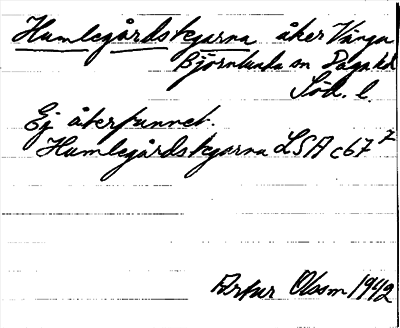 Humlegårdskjärna åker Vånga
Björnlunda sn Daga hd
Söd. l.
Ej återfunnet.
Humlegårdskjärna LSA c67 7
Artur Olsson 1942